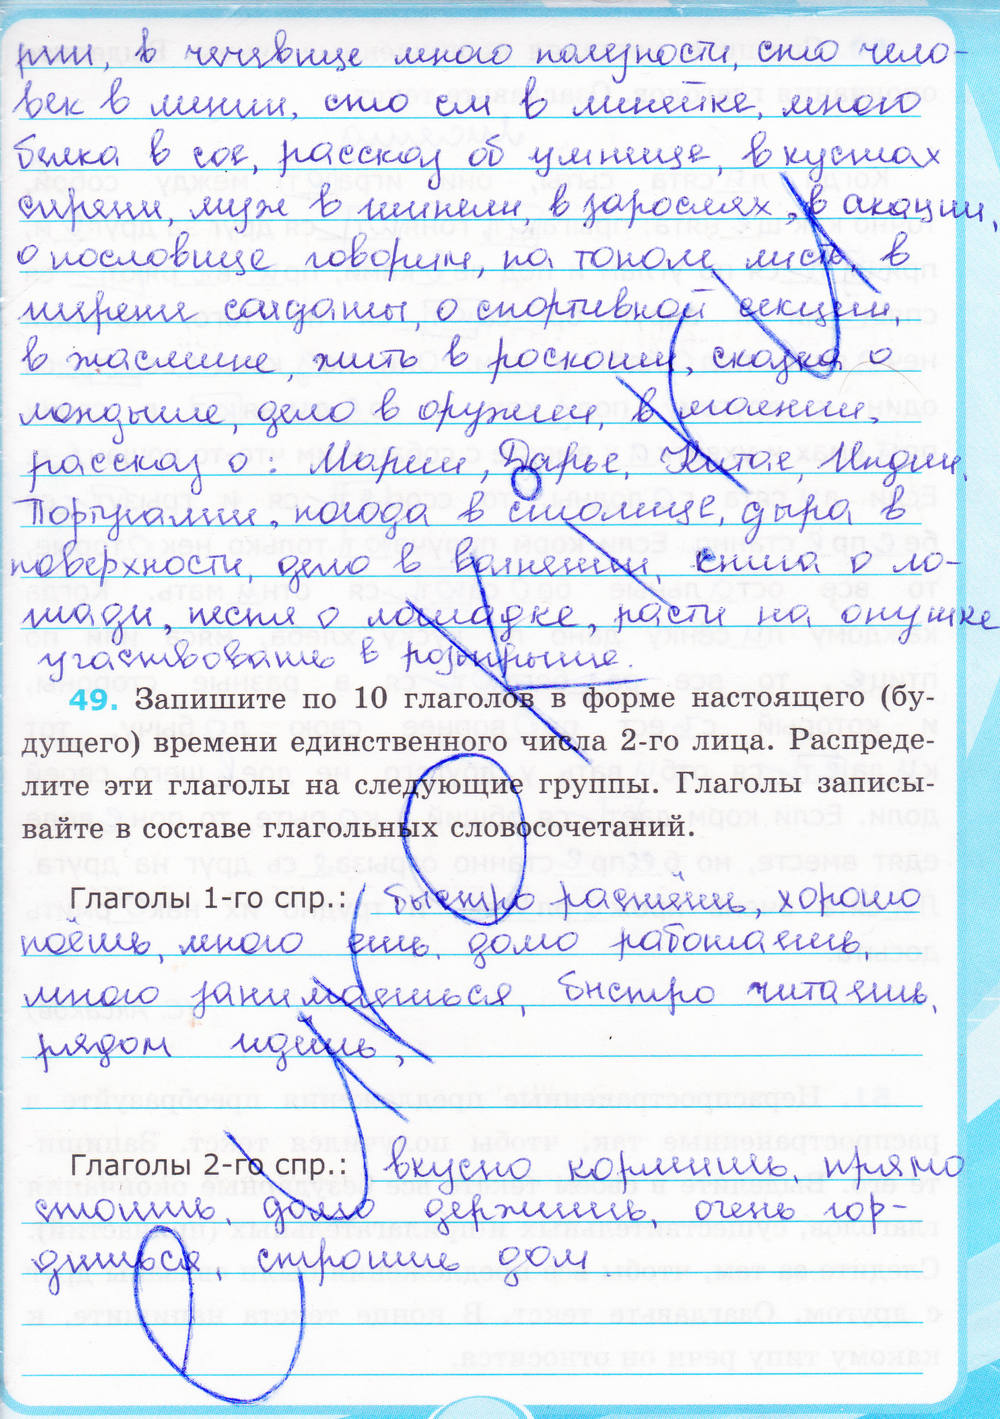 рии, в чечевице много полезности, сто чело-
век в линии, сто см в линейке, много
белка в сое, рассказ об умнице, в кустах
сирени, муж в шинели, в зарослях, в акации,
о пословице говорим, на тополе, лист в
сирени, солдаты, о спортивной секции,
в жасмине, жить в роскоши, сказка о
ландыше, дело в оружии, в молнии,
рассказ о: Марии, Дарье, Китае, Индии,
Португалии, погода в столице, дыра в
поверхности, дело в волнении, книга о ло-
шади, песня о лошадке, расти на опушке
участвовать в розыгрыше.
49. Запишите по 10 глаголов в форме настоящего (бу-
дущего) времени единственного числа 2-го лица. Распреде-
лите эти глаголы на следующие группы. Глаголы записы-
вайте в составе глагольных словосочетаний.
Глаголы 1-го спр.: быстро растёшь, хорошо
поёшь, много ешь, дома работаешь,
много занимаешься, быстро читаешь,
рядом идёшь,
Глаголы 2-го спр.: вкусно кормишь, прямо
стоишь, долго держишь, очень гор-
дишься, строишь дом